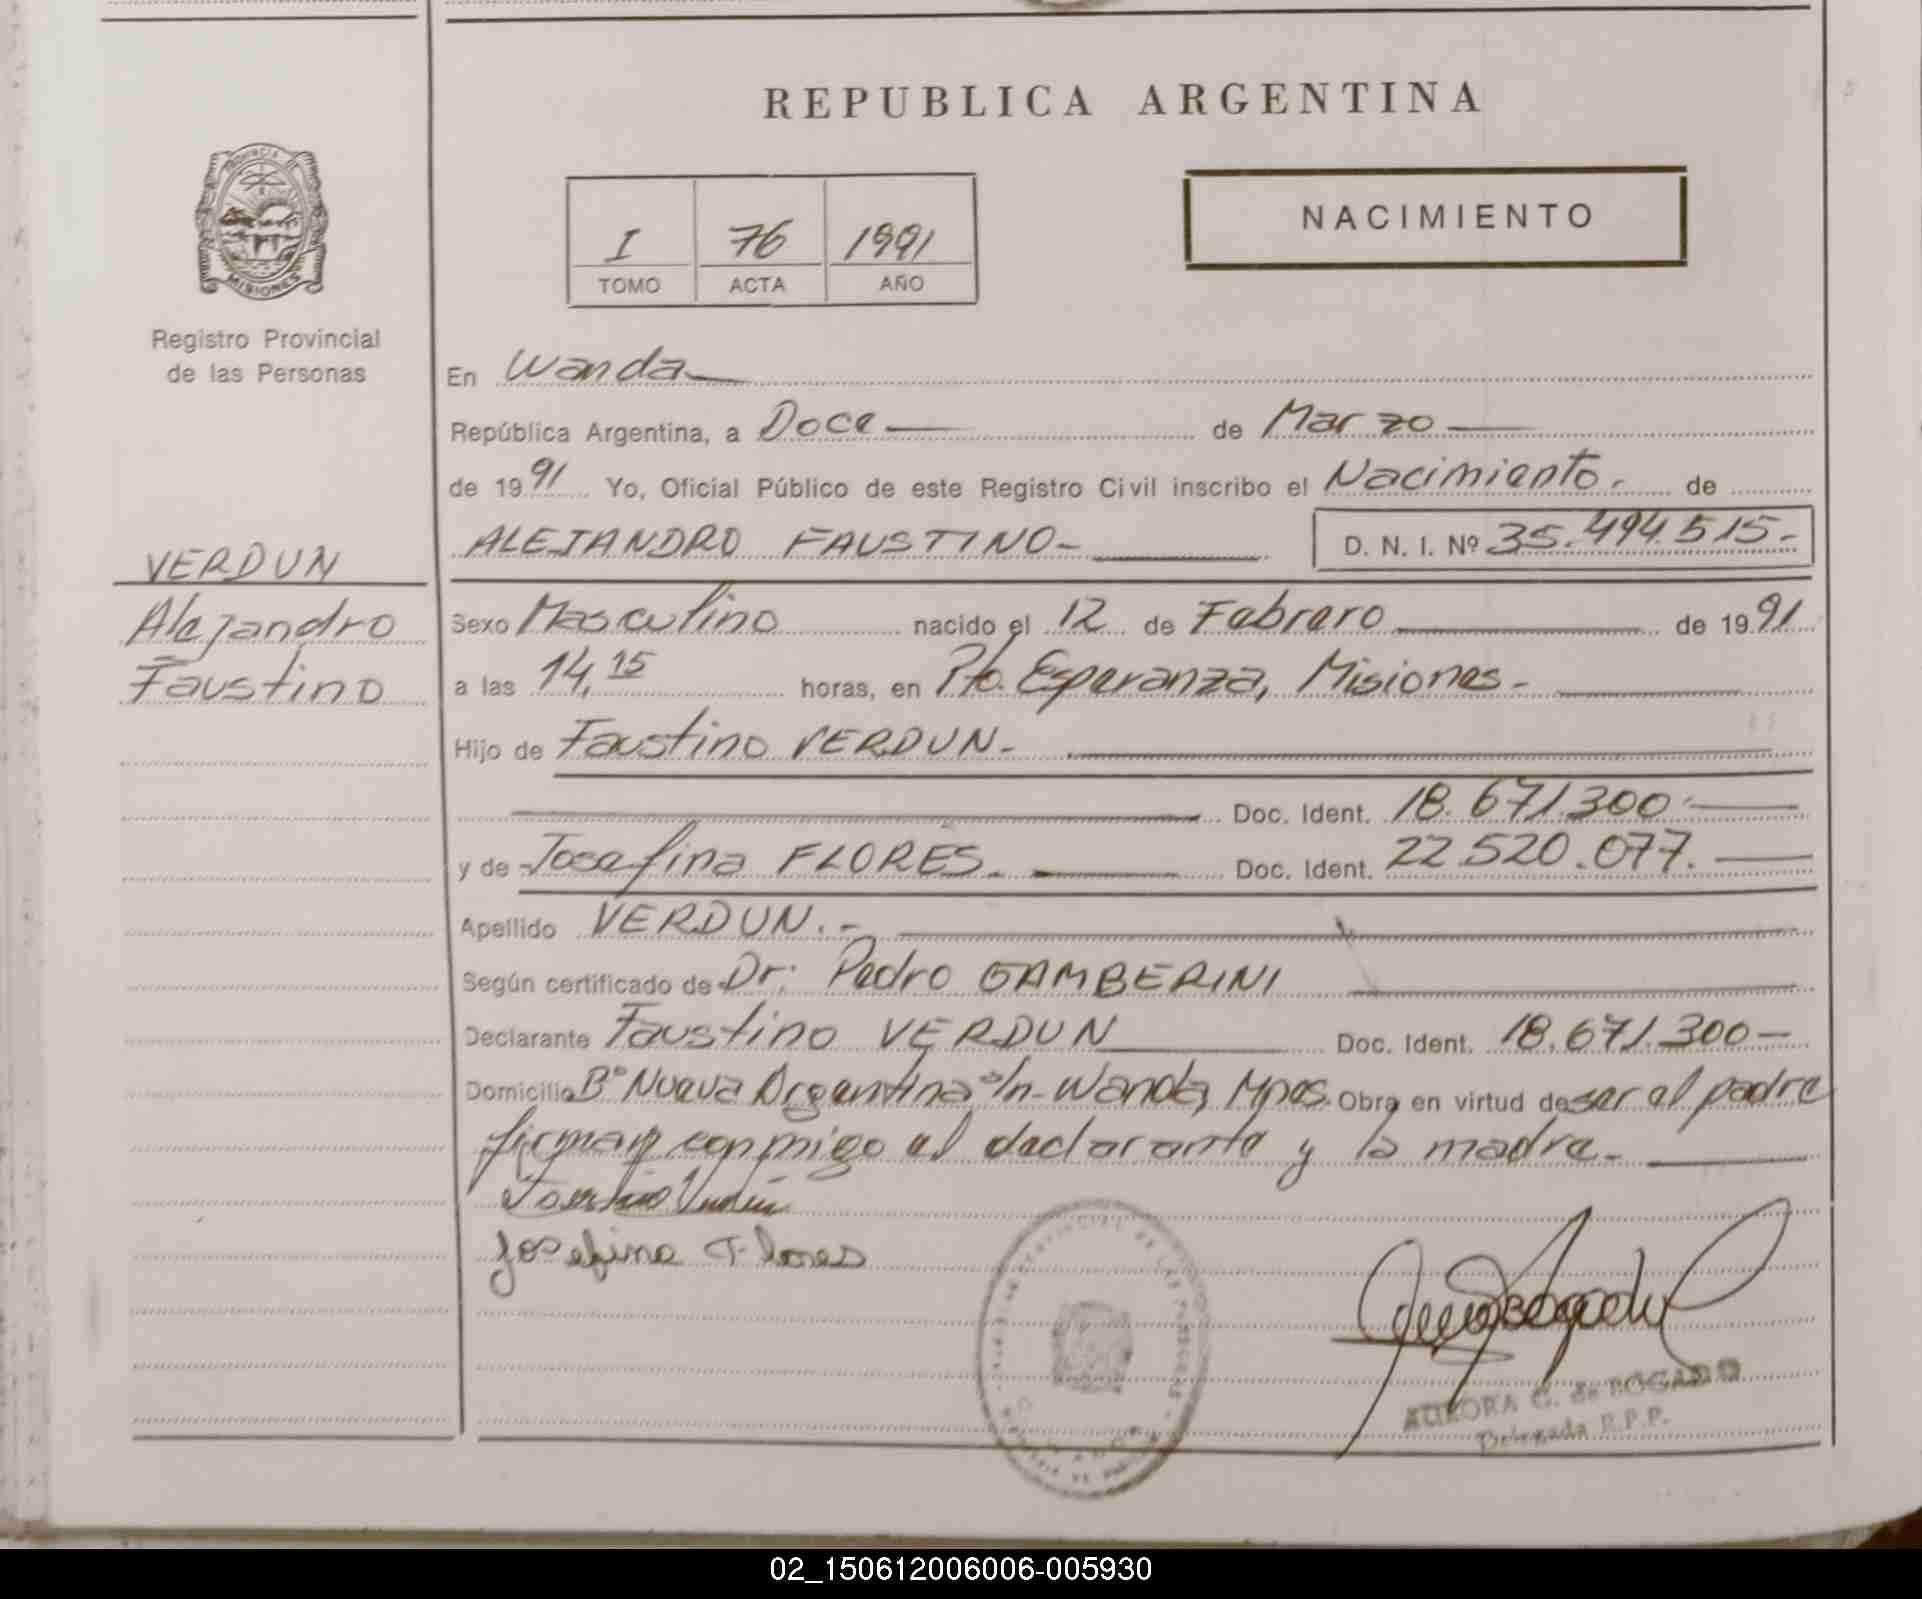 REPUBLICA ARGENTINA
PROVINCIA DE
MISIONES
Registro Provincial
de las Personas
I 76 1991
TOMO ACTA AÑO
NACIMIENTO
En Wanda
República Argentina, a Doce de Marzo
de 1991 Yo, Oficial Público de este Registro Civil inscribo el Nacimiento. de
ALEJANDRO FAUSTINO- D. N. I. Nº 35.494.515.-
VERDUN
Alejandro
Faustino
Sexo Masculino nacido el 12 de Febrero de 1991
a las 14,15 horas, en Pto. Esperanza, Misiones-
Hijo de Faustino VERDUN-
Doc. Ident. 18.671.300.-
y de Josefina FLORES. Doc. Ident. 22.520.077.
Apellido VERDUN.-
Según certificado de Dr: Pedro GAMBERINI
Declarante Faustino VERDUN Doc. Ident. 18.671.300-
Domicilio Bº Nueva Argentina s/n- Wanda, Mnes. Obra en virtud de ser el padre
firman conmigo el declarante y la madre-
Faustino Verdun
Josefina Flores
AURORA G. de BOGADO
Delegada R.P.P.
02_150612006006-005930